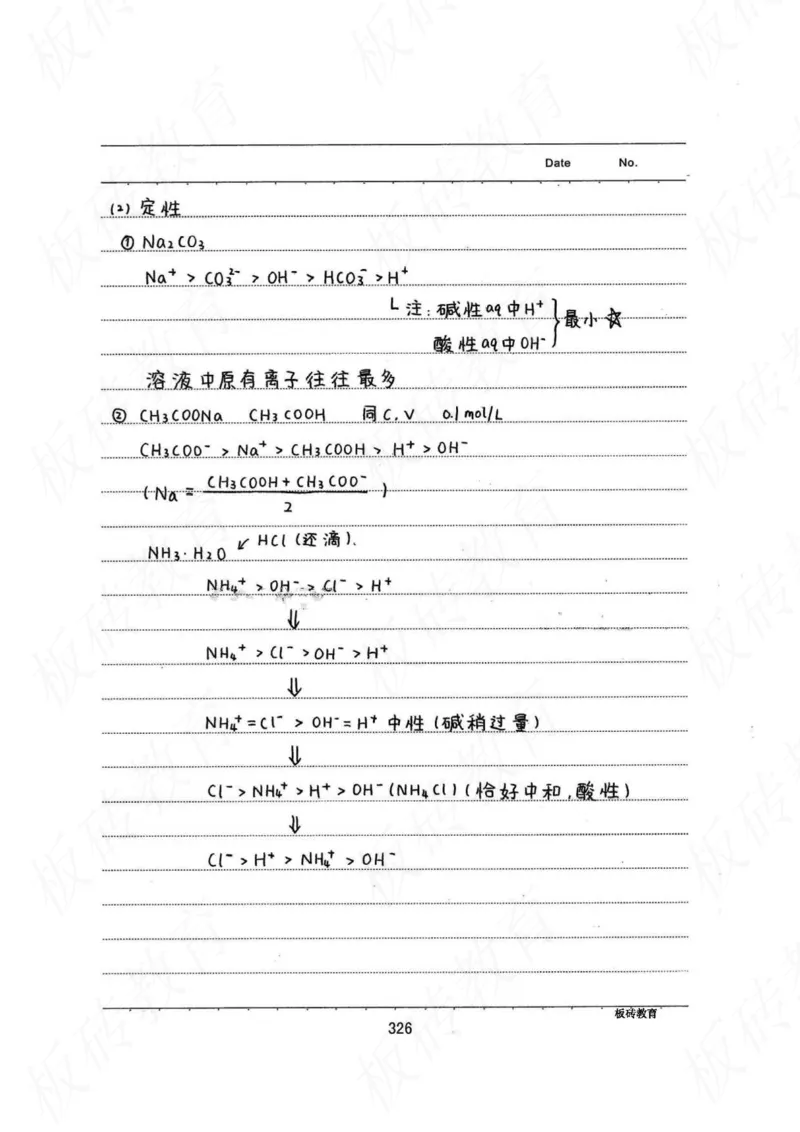 Date No.
(2) 定性
① Na₂CO₃
Na⁺ > CO₃²⁻ > OH⁻ > HCO₃⁻ > H⁺
注：碱性aq中H⁺
酸性aq中OH⁻ } 最小 ☆
溶液中原有离子往往最多
② CH₃COONa CH₃COOH 同C,V 0.1 mol/L
CH₃COO⁻ > Na⁺ > CH₃COOH > H⁺ > OH⁻
(Na = (CH₃COOH + CH₃COO⁻)/2)
NH₃·H₂O ↙ HCl (逐滴).
NH₄⁺ > OH⁻ > Cl⁻ > H⁺
⇓
NH₄⁺ > Cl⁻ > OH⁻ > H⁺
⇓
NH₄⁺ = Cl⁻ > OH⁻ = H⁺ 中性 (碱稍过量)
⇓
Cl⁻ > NH₄⁺ > H⁺ > OH⁻ (NH₄Cl) (恰好中和,酸性)
⇓
Cl⁻ > H⁺ > NH₄⁺ > OH⁻
板砖教育
326